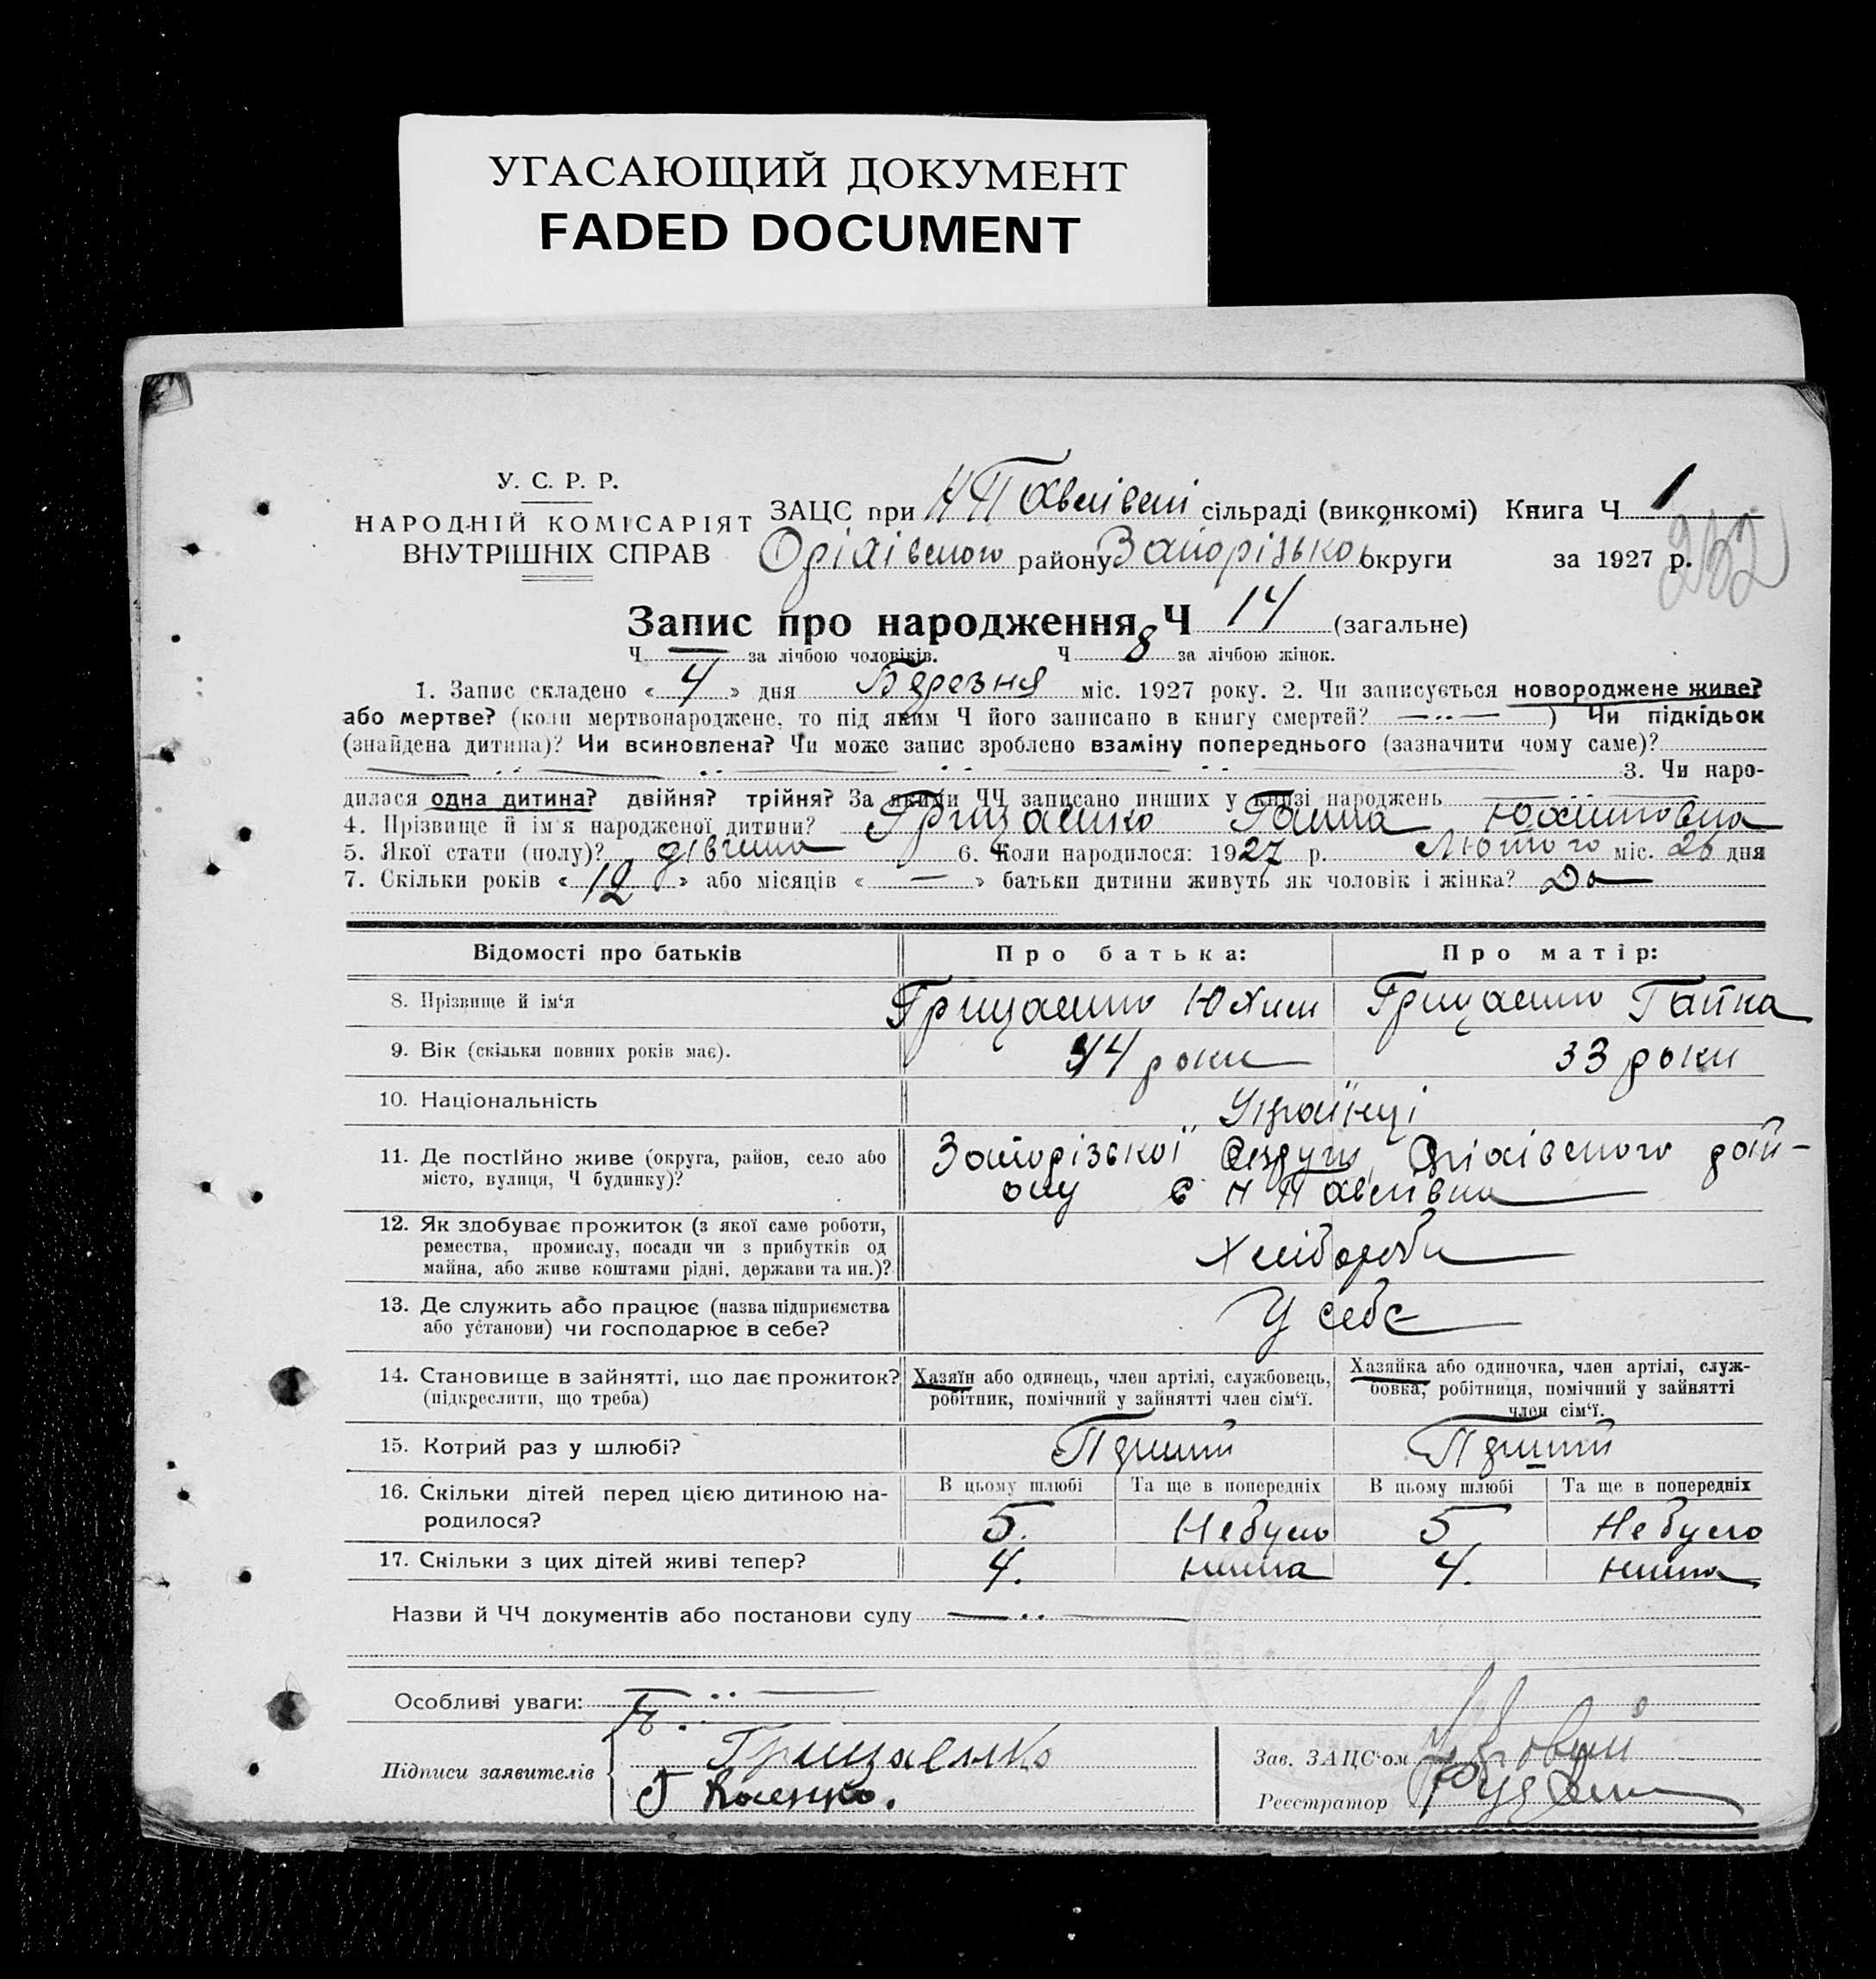 УГАСАЮЩИЙ ДОКУМЕНТ
FADED DOCUMENT
У. С. Р. Р.
НАРОДНІЙ КОМІСАРІЯТ
ВНУТРІШНІХ СПРАВ
ЗАЦС при Н Павлівскі сільраді (виконкомі) Книга Ч 1
Оріхівского району Запорізько округи за 1927 р.
252
Запис про народження Ч 14 (загальне)
Ч — за лічбою чоловіків. Ч 8 за лічбою жінок.
1. Запис складено « 4 » дня Березня міс. 1927 року. 2. Чи записується новороджене живе?
або мертве? (коли мертвонароджене, то під яким Ч його записано в книгу смертей? —··— ) Чи підкідьок
(знайдена дитина)? Чи всиновлена? Чи може запис зроблено взаміну попереднього (зазначити чому саме)?
3. Чи наро-
дилася одна дитина? двійня? трійня? За якими ЧЧ записано инших у книзі народжень
4. Прізвище й ім'я народженої дитини? Грищенко Ганна Юхимовна
5. Якої стати (полу)? дівчина 6. Коли народилося: 1927 р. Лютого міс. 26 дня
7. Скільки років « 12 » або місяців « — » батьки дитини живуть як чоловік і жінка? Да
Відомості про батьків Про батька: Про матір:
8. Прізвище й ім'я Грищенко Юхим Грищенко Ганна
9. Вік (скільки повних років має). 34 роки 33 роки
10. Національність Українці
11. Де постійно живе (округа, район, село або Запорізької Округи, Оріхівского рай-
місто, вулиця, Ч будинку)? ону с Н Павлівка
12. Як здобуває прожиток (з якої саме роботи,
ремества, промислу, посади чи з прибутків од Хлібороби
майна, або живе коштами рідні, держави та ин.)?
13. Де служить або працює (назва підприємства У себе
або установи) чи господарює в себе?
14. Становище в зайнятті, що дає прожиток? Хазяїн або одинець, член артілі, службовець, Хазяйка або одиночка, член артілі, служ-
(підкреслити, що треба) робітник, помічний у зайнятті член сім'ї. бовка, робітниця, помічний у зайнятті
член сім'ї.
15. Котрий раз у шлюбі? Перший Перший
16. Скільки дітей перед цією дитиною на- В цьому шлюбі Та ще в попередніх В цьому шлюбі Та ще в попередніх
родилося? 5. Небуло 5 Небуло
17. Скільки з цих дітей живі тепер? 4. нима 4. нима
Назви й ЧЧ документів або постанови суду —··—
Особливі уваги: —··—
Підписи заявителів Грищенко
Зав. ЗАЦС'ом
Реєстратор